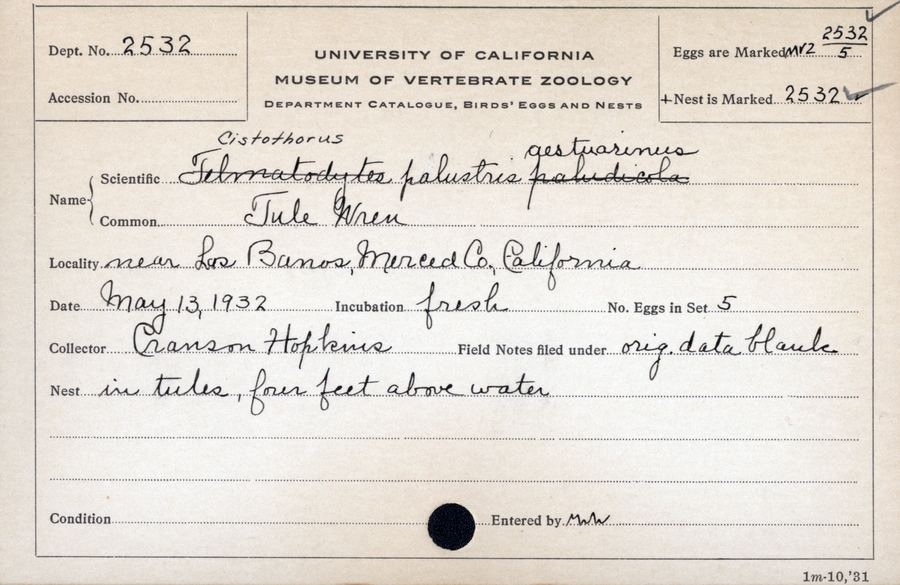 Dept. No. 2532
Accession No.
UNIVERSITY OF CALIFORNIA
MUSEUM OF VERTEBRATE ZOOLOGY
DEPARTMENT CATALOGUE, BIRDS' EGGS AND NESTS
Eggs are Marked 2532
5
+Nest is Marked 2532 ✓
Cistothorus aestuarinus
Name { Scientific Telmatodytes palustris paludicola
Common Tule Wren
Locality near Los Banos, Merced Co., California
Date May 13, 1932 Incubation fresh No. Eggs in Set 5
Collector Cranson Hopkins Field Notes filed under orig. data blank
Nest in tules, four feet above water
Condition Entered by
1m-10,'31